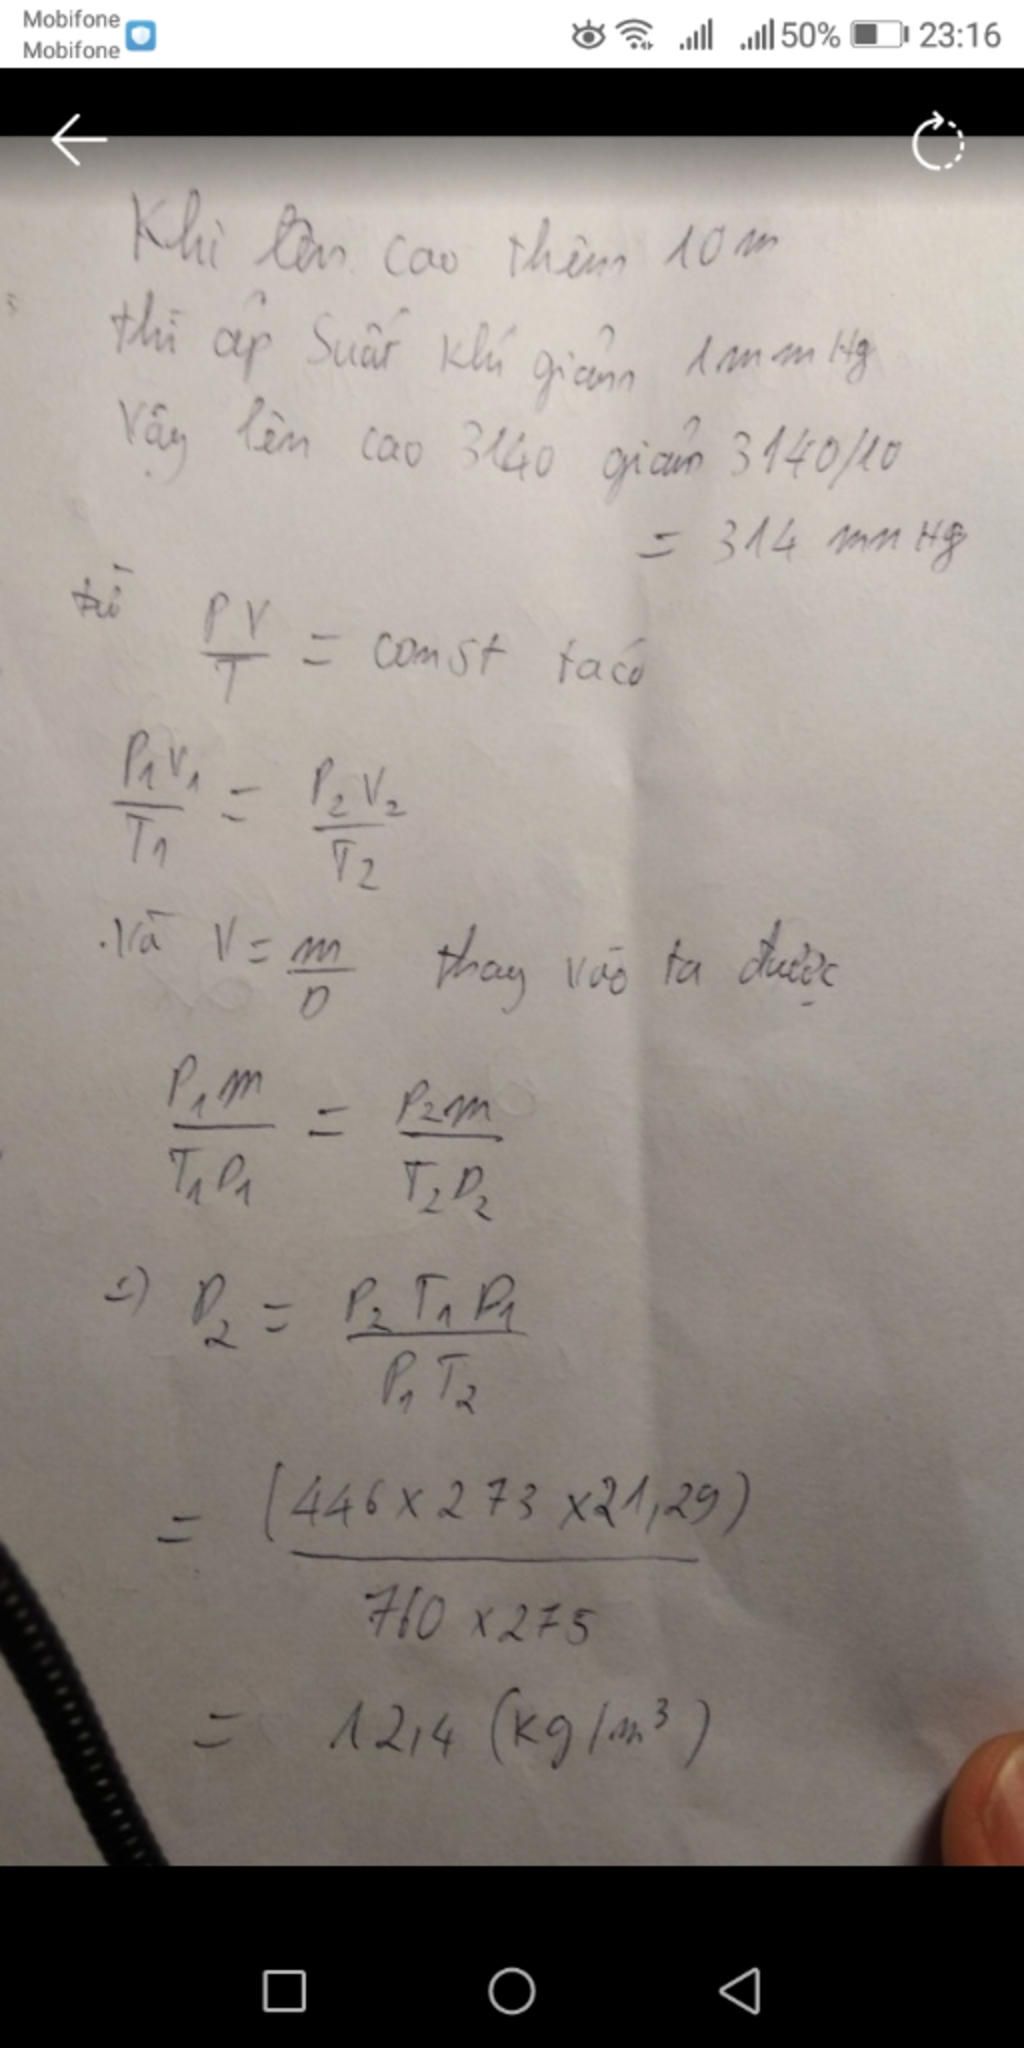 Mobifone
Mobifone
50% 23:16
Khi lên cao thêm 10m
thì áp suất khí giảm 1mmHg
Vậy lên cao 3140 giảm 3140/10
= 314 mmHg
từ PV/T = const ta có
P₁V₁/T₁ = P₂V₂/T₂
và V = m/D thay vào ta được
P₁m/T₁D₁ = P₂m/T₂D₂
=) D₂ = P₂T₁D₁/P₁T₂
= (446 x 273 x 21,29)/760 x 275
= 12,4 (kg/m³)